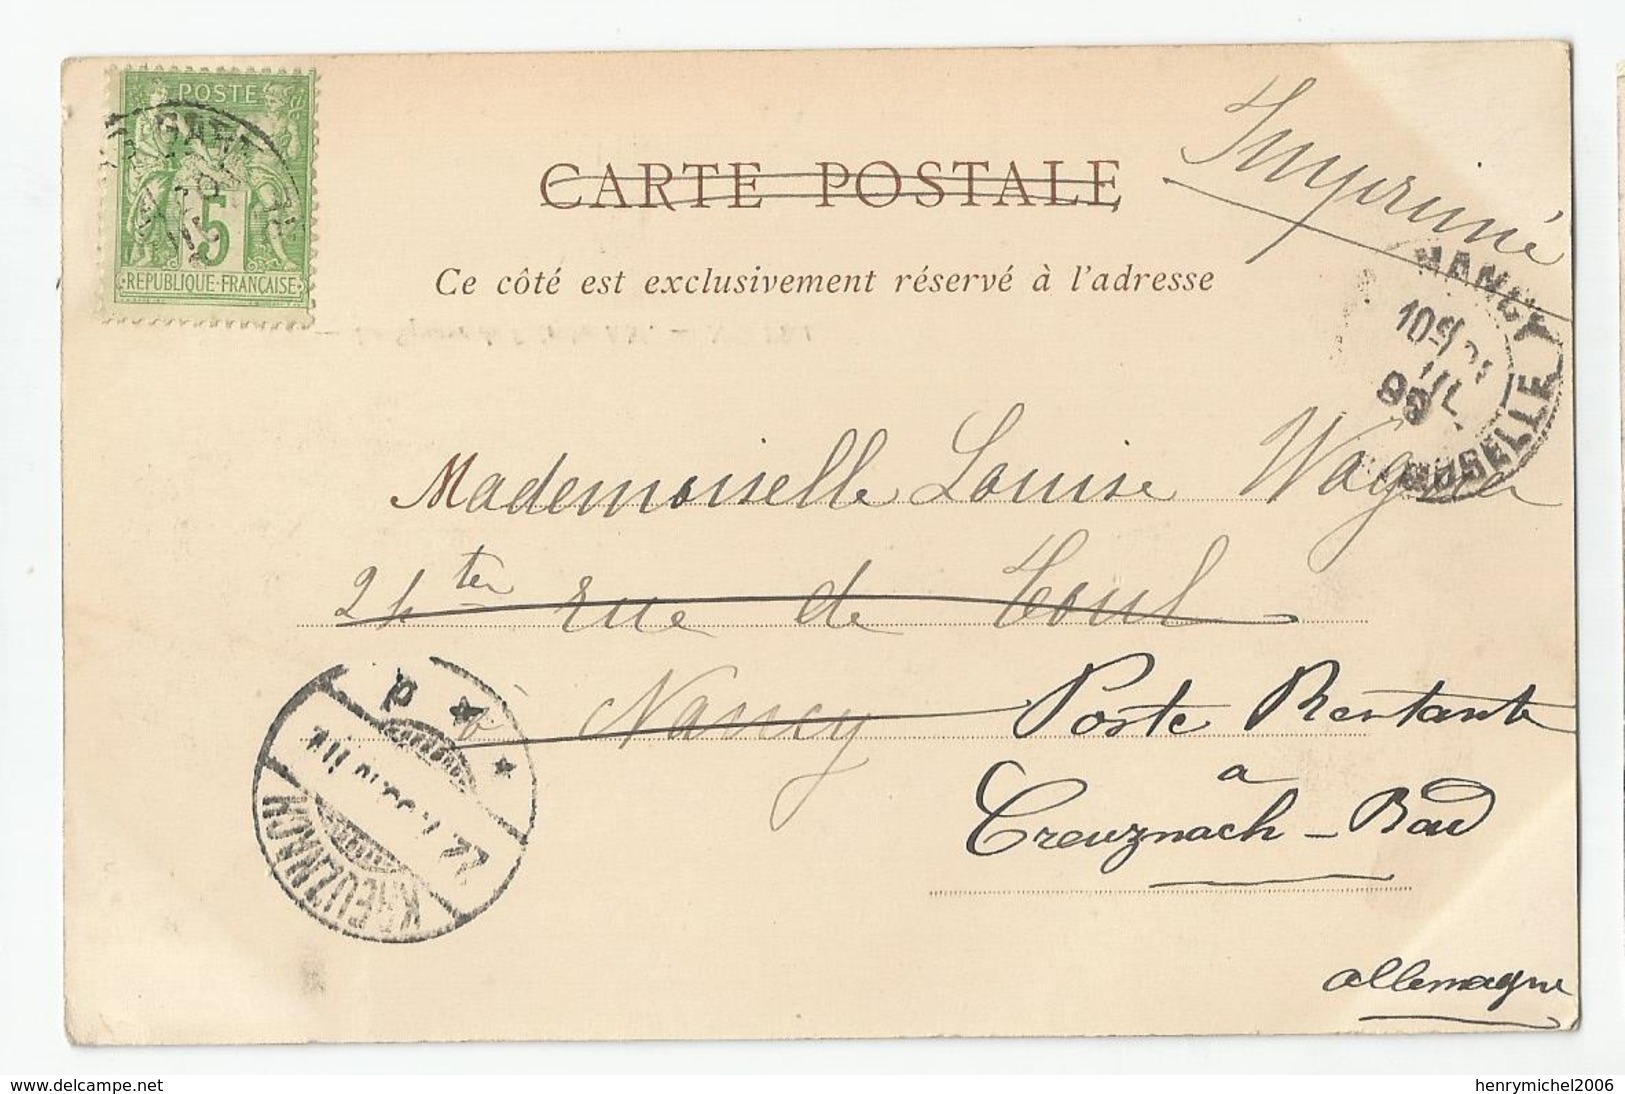 POSTE
5
REPUBLIQUE FRANÇAISE
CARTE POSTALE
Imprimé
Ce côté est exclusivement réservé à l'adresse
NANCY
10
99
MOSELLE
Mademoiselle Louise Wagner
24 ter rue de Toul
à Nancy
Poste Restante
a
Creuznach-Bad
allemagne
KREUZNACH
www.delcampe.net
henrymichel2006